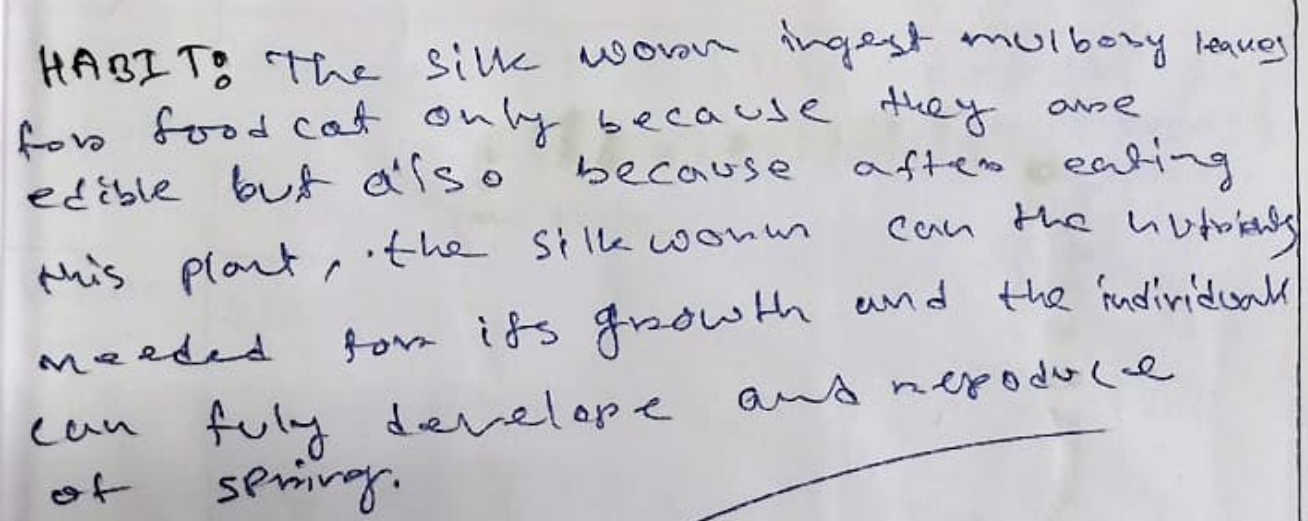 HABIT: The silk worm ingest mulbory leaves
for food cat only because they are
edible but also because after eating
this plant, the silk worm can the nutrients
needed for its growth and the individuals
can fuly develope and repoduce
of spring.